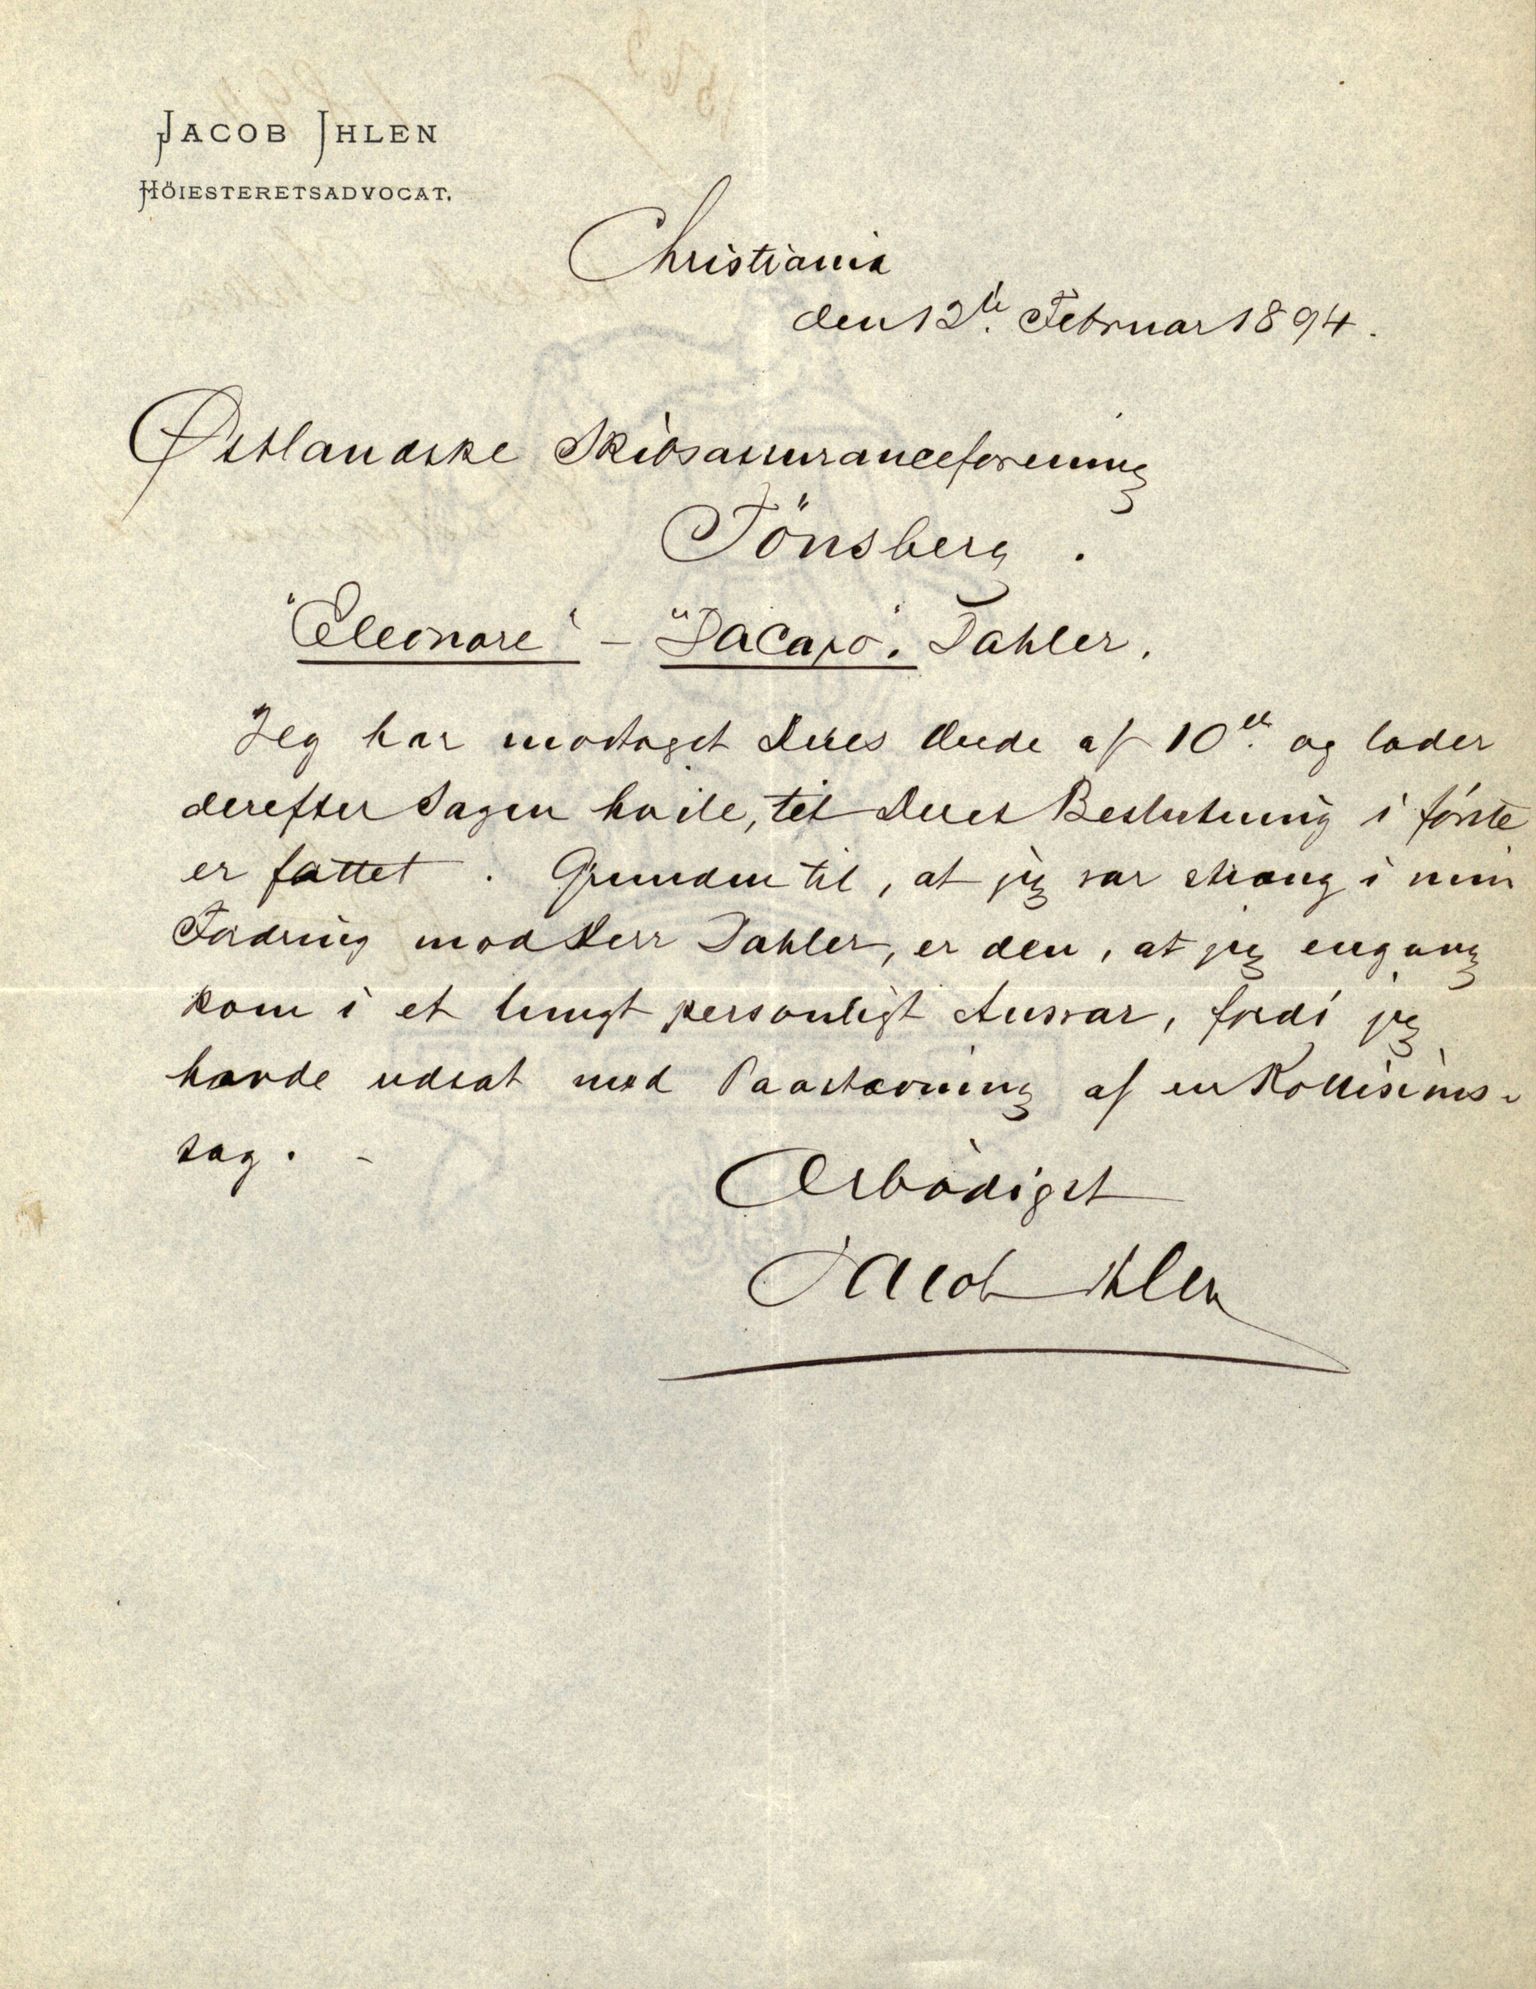 JACOB IHLEN
HÖIESTERETSADVOCAT.
Christiania
den 12te Februar 1894.
Østlandske Skibsassuranceforening
Tönsberg.
"Eleonore" - "Dacapo". Dahler.
Jeg har modtaget Deres Ærede af 10de og lader
derefter Sagen hvile, til Deres Beslutning i første
er fattet. Grunden til, at jeg var streng i min
Fordring mod Herr Dahler, er den, at jeg engang
kom i et tungt personligt Ansvar, fordi jeg
havde udsat med Paastævning af en Kollisions-
sag. -
Ærbødigst
Jacob Ihlen